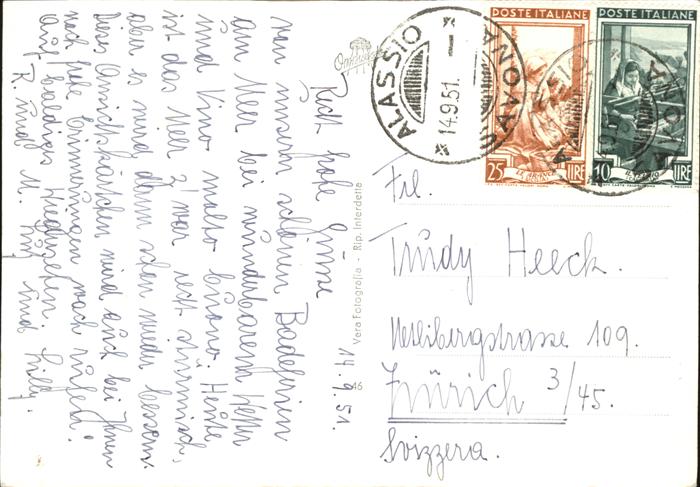 14.9.51.
Recht frohe Grüsse
von unsern schönen Badeferien
am Meer bei wunderbarem Wetter
und Vino molto buono. Heute
ist das Meer zwar recht stürmisch,
aber es wird dann schon wieder besser.
Dies Ansichtskärtchen wird auch bei Ihnen
noch frohe Erinnerungen wach rufen!
Auf baldiges Wiedersehen.
R. und M. und Lilly.
Vera Fotografia - Rip. Interdetta
46
ALASSIO
14.9.51.
SAVONA
POSTE ITALIANE
25 LIRE
POSTE ITALIANE
10 LIRE
Frl.
Trudy Heeck.
Uetlibergstrasse 109.
Zürich 3/45.
Svizzera.